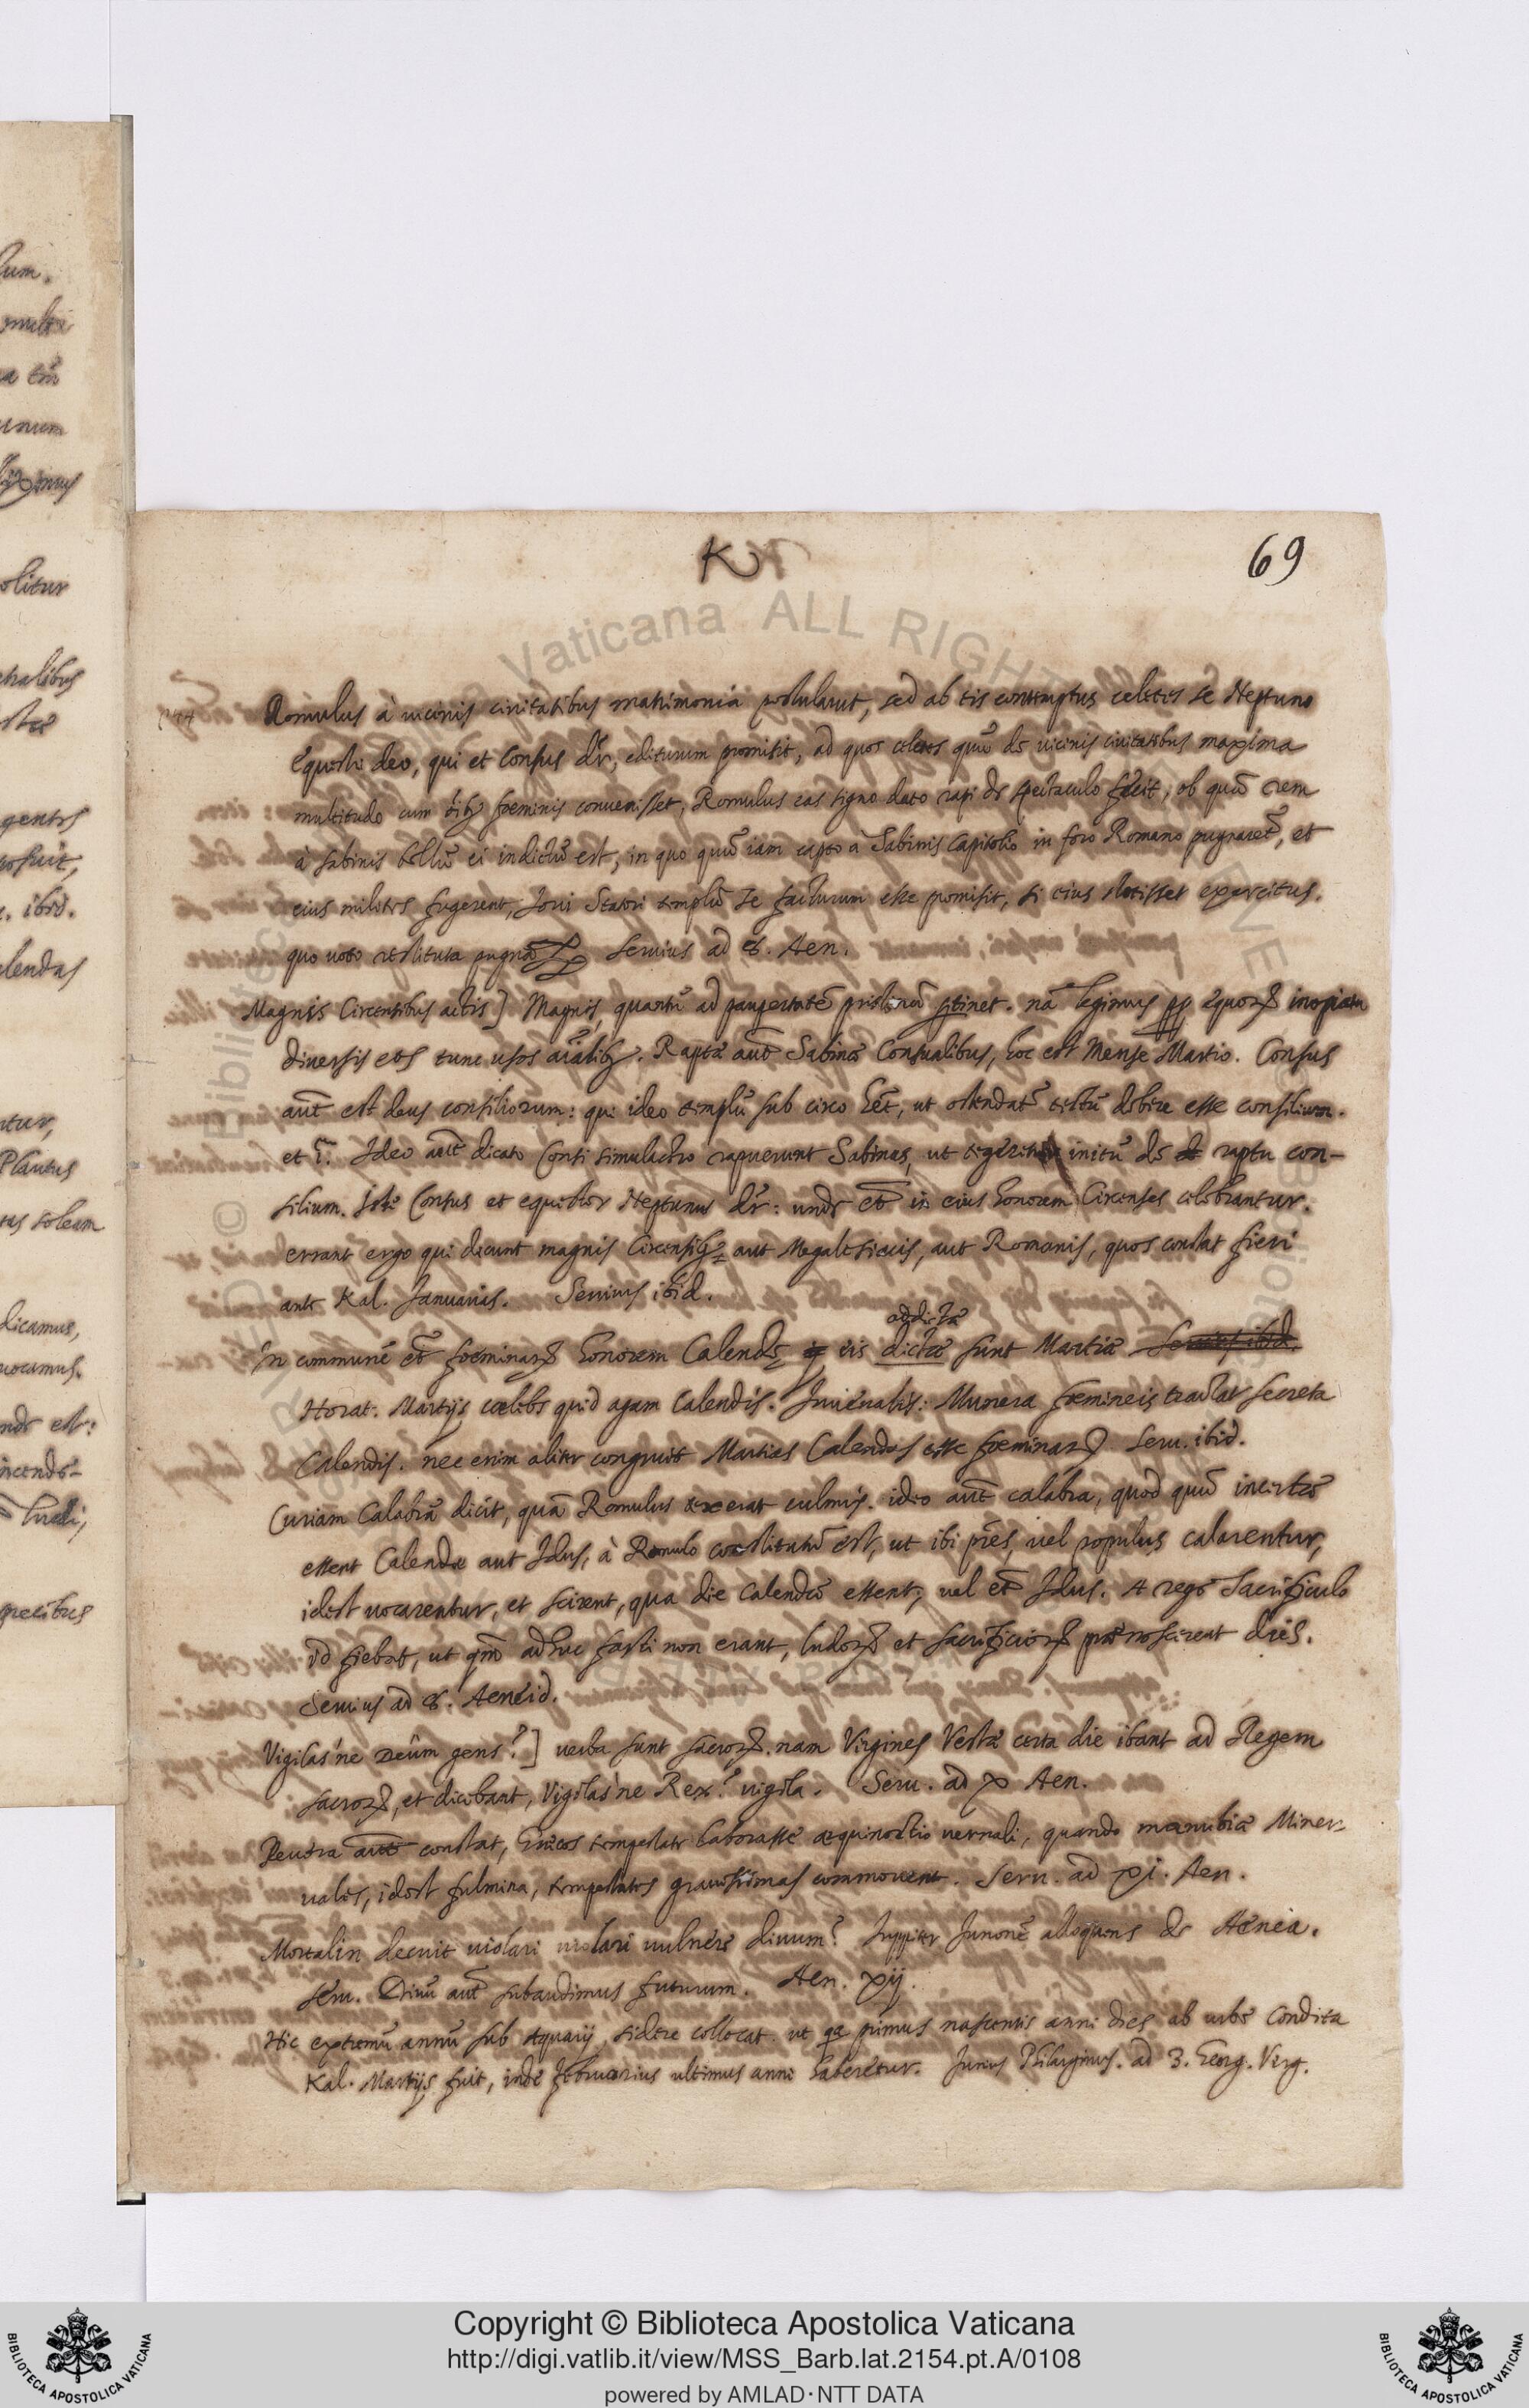 K
69
Romulus à uicinis ciuitatibus matrimonia postulauit, sed ab iis contemptus celeres se Neptuno
Equestri deo, qui et Consus dr̃, editurum promisit, ad quos quũ de uicinis ciuitatibus maxima
multitudo cum foeminis conuenisset, Romulus eas signo dato rapi de spectaculo fecit, ob quã rem
à Sabinis bellũ ei indictũ est, in quo quũ iam capto a Sabinis Capitolio in foro Romano pugnaret̃, et
eius milites fugerent, Ioui Statori templũ se facturum esse promisit, si eius stetisset exercitus.
quo uoto restituta pugna Seruius ad 8. Aen.
Magnis Circensibus actis] Magnis, quantũ ad paupertatẽ pristinã ꝑtinet. nã legimus ꝓꝑ equoꝝ inopiam
diuersis eos tunc usos aĩalibꝫ. Raptae aut̃ Sabinae Consualibus, hoc est Mense Martio. Consus
aut̃ est deus consiliorum: qui ideo templũ sub circo hẽt, ut ostendat̃ tectũ debere esse consilium.
et ĩ. Ideo aut̃ dicato Consi simulachro rapuerunt Sabinas, ut tegeret initũ de raptu con-
silium. Itẽ Consus et equester Neptunus dr̃: unde et̃ in eius honorem Circenses celebrantur.
errant ergo qui dicunt magnis Circensibꝫ aut Megalesiacis, aut Romanis, quos constat fieri
ante Kal. Ianuarias. Seruius ibid.
addictae
In communẽ et̃ foeminaꝝ honorem Calendae eis dictae sunt Martiae Seruius ibid.
Horat. Martijs coelebs quid agam Calendis. Iuuenalis: Munera foemineis tractat secreta
Calendis. nec enim aliter congruit Martias Calendas esse foeminaꝝ. Seru. ibid.
Curiam Calabrã dicit, quã Romulus texerat culmis. ideo aut̃ calabra, quod quũ incertae
essent Calendae aut Idus, à Romulo constitutũ est, ut ibi pr̃es, uel populus calarentur,
idest uocarentur, et scirent, qua die Calendae essent, uel et̃ Idus. A rege Sacrificulo
id fiebat, ut qm̃ adhuc fasti non erant, ludoꝝ et sacrificioꝝ praenoscerent dies.
Seruius ad 8. Aeneid.
Vigilas'ne Deûm gens?] uerba sunt sacroꝝ. nam Virgines Vestae certa die ibant ad Regem
sacroꝝ, et dicebant, Vigilas'ne Rex? uigila. Seru. ad x Aen.
Reuera aut̃ constat, Graecos tempestate laborasse aequinoctio uernali, quando manubiae Miner-
uales, idest fulmina, tempestates grauissimas commouent. Seru. ad xi. Aen.
Mortalin decuit uiolari uiolari uulnere diuum? Iuppiter Iunonẽ alloquens de Aenea.
Seru. Diuũ aut̃ subaudimus futurum. Aen. xij.
Hic extremũ annũ sub Aquarij sidere collocat. ut qa primus nascentis anni dies ab urbe condita
Kal. Martijs fuit, inde Februarius ultimus anni haberetur. Iunius Philargirius. ad 3. Georg. Virg.
Copyright © Biblioteca Apostolica Vaticana
http://digi.vatlib.it/view/MSS_Barb.lat.2154.pt.A/0108
powered by AMLAD·NTT DATA